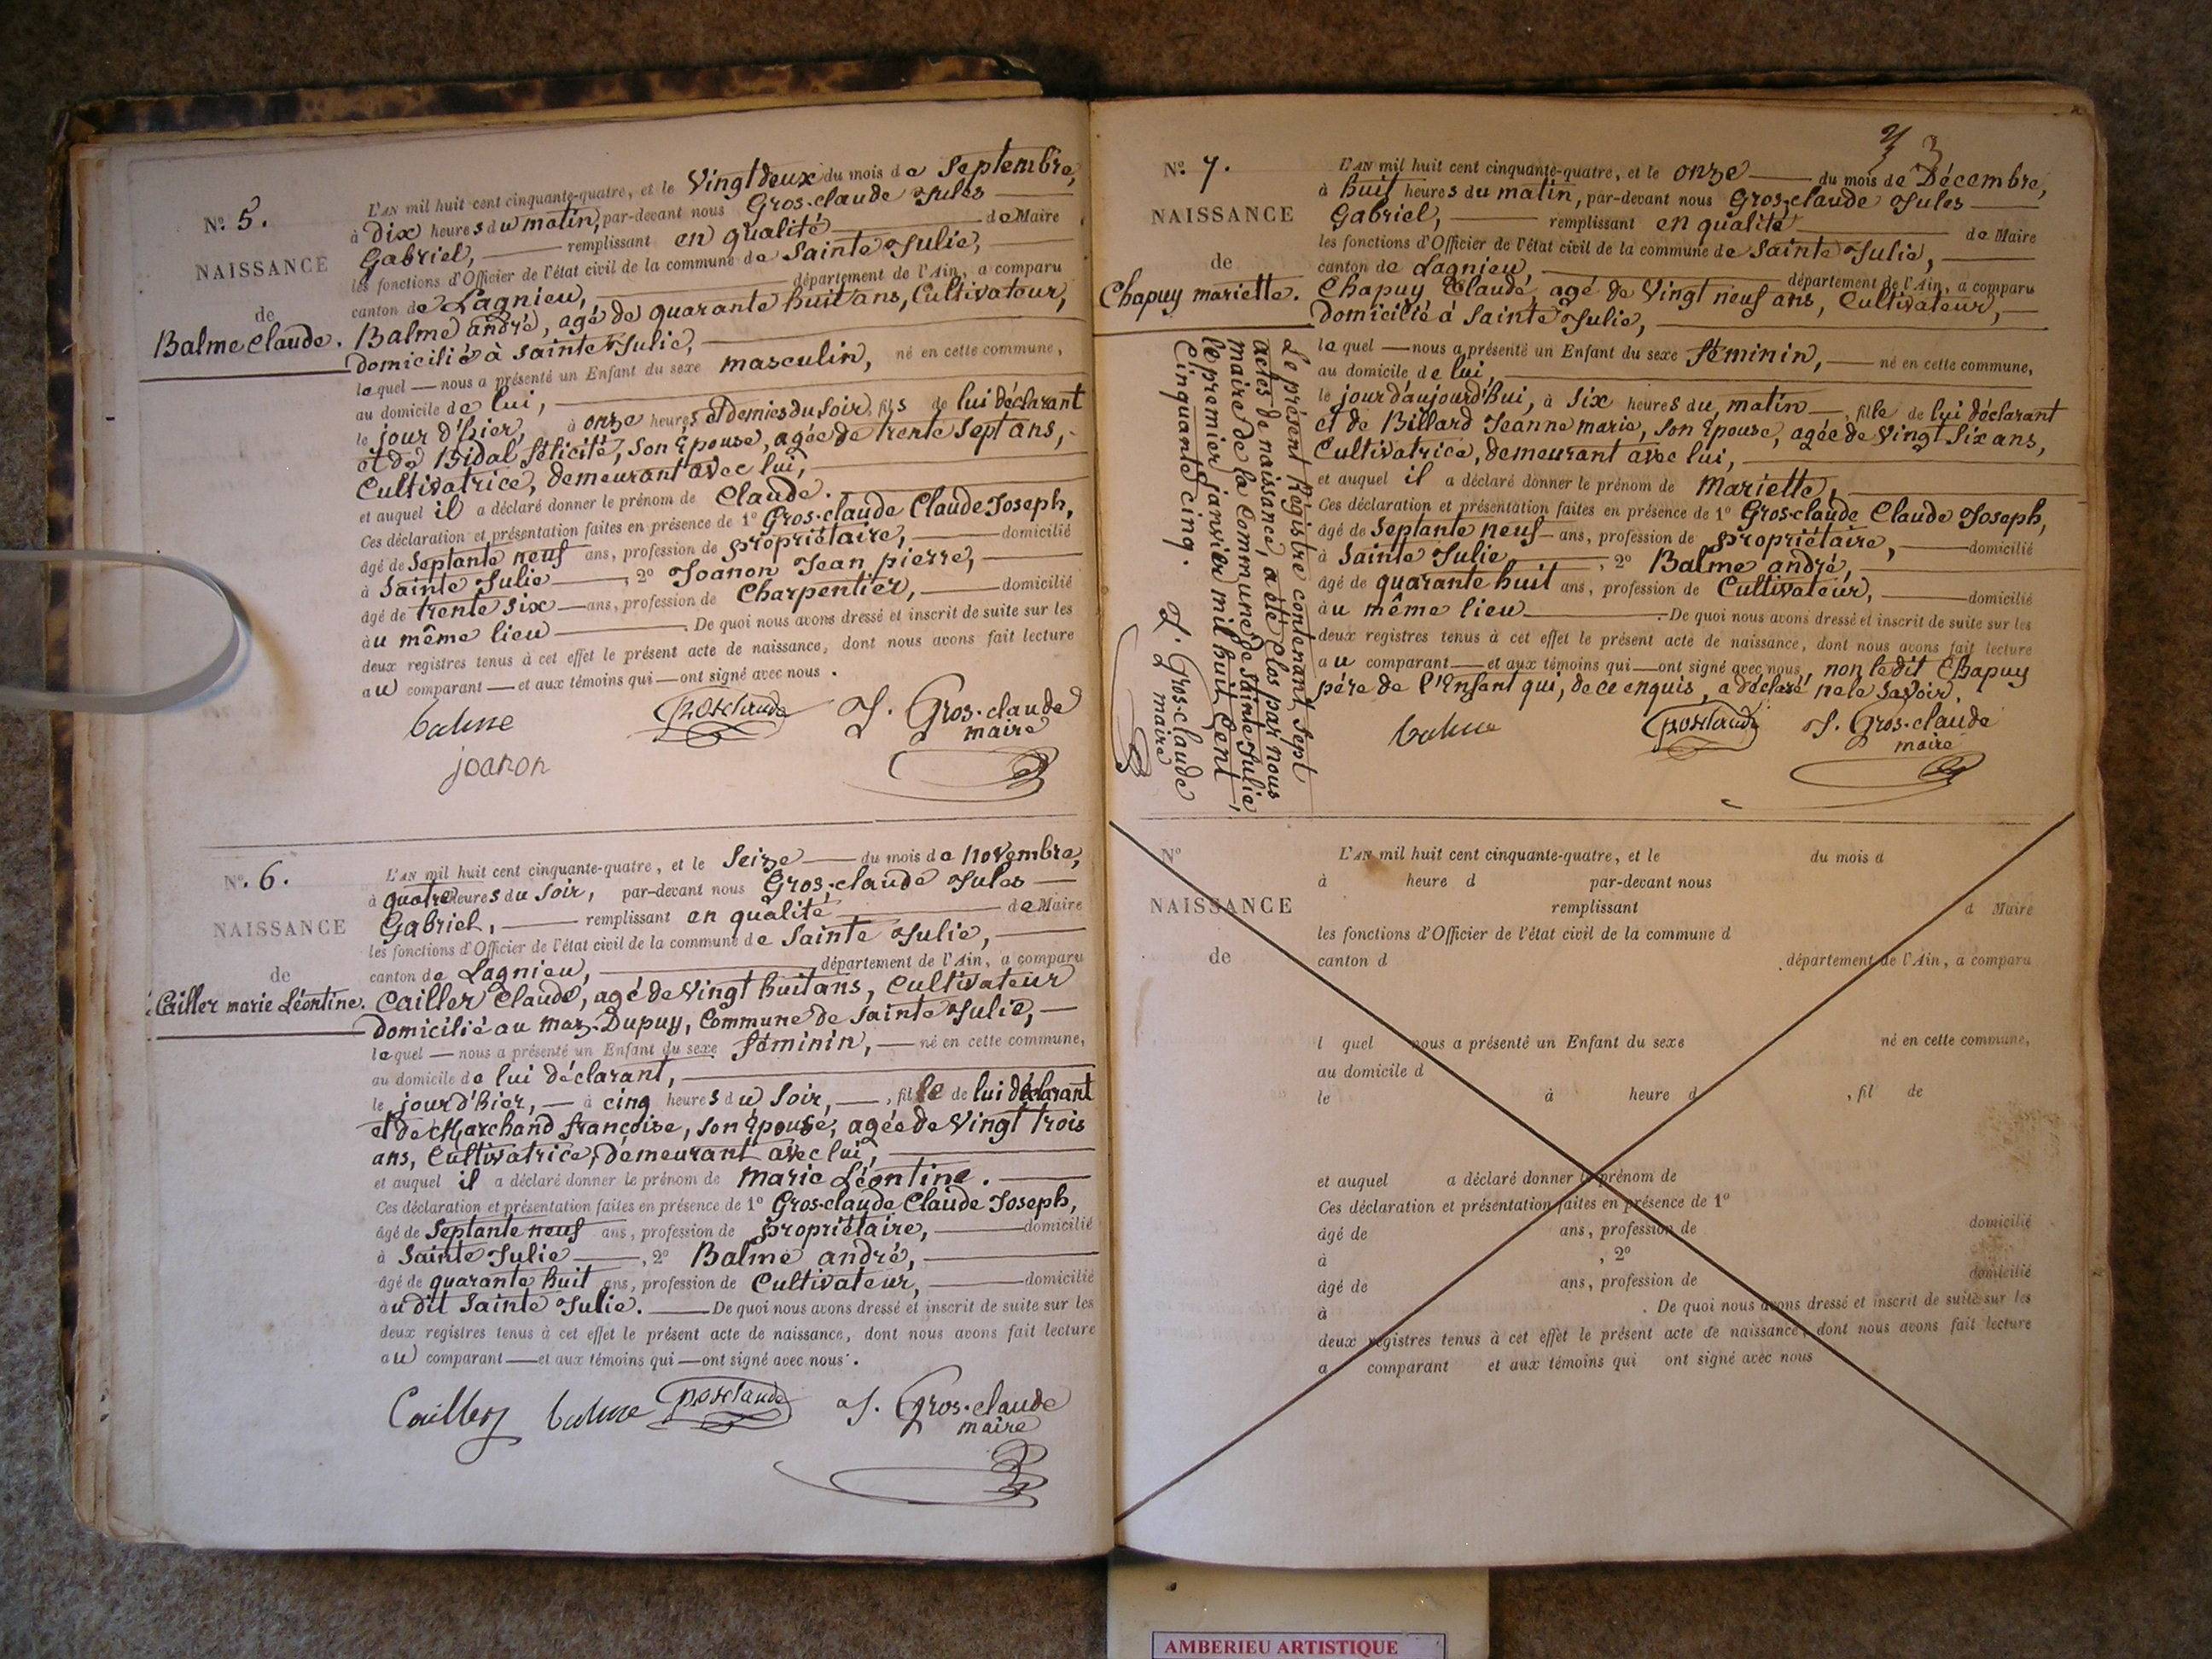 N° 5.
NAISSANCE
de
Balme Claude.
L'AN mil huit cent cinquante-quatre, et le Vingt deux du mois de Septembre,
à dix heures du matin, par-devant nous Gros-claude Jules
Gabriel, remplissant en qualité de Maire
les fonctions d'Officier de l'état civil de la commune de Sainte Julie,
canton de Lagnieu, département de l'Ain, a comparu
Balme andré, agé de quarante huit ans, Cultivateur,
domicilié à Sainte Julie,
lequel nous a présenté un Enfant du sexe masculin, né en cette commune,
au domicile de lui,
le jour d'hier, à onze heures et demies du soir, fils de lui déclarant
et de Bidal félicité, son épouse, agée de trente sept ans,
Cultivatrice, demeurant avec lui,
et auquel il a déclaré donner le prénom de Claude.
Ces déclaration et présentation faites en présence de 1° Gros-claude Claude Joseph,
âgé de Septante neuf ans, profession de propriétaire, domicilié
à Sainte Julie, 2° Joanon Jean pierre,
âgé de trente six ans, profession de Charpentier, domicilié
au même lieu. De quoi nous avons dressé et inscrit de suite sur les
deux registres tenus à cet effet le présent acte de naissance, dont nous avons fait lecture
au comparant et aux témoins qui ont signé avec nous.
balme Grosclaude J. Gros-claude
maire
joanon
N° 6.
NAISSANCE
de
Cailler marie Léontine.
L'AN mil huit cent cinquante-quatre, et le Seize du mois de Novembre,
à quatre heures du Soir, par-devant nous Gros-claude Jules
Gabriel, remplissant en qualité de Maire
les fonctions d'Officier de l'état civil de la commune de Sainte Julie,
canton de Lagnieu, département de l'Ain, a comparu
Cailler Claude, agé de Vingt huit ans, Cultivateur
domicilié au maz-Dupuy, Commune de Sainte Julie,
lequel nous a présenté un Enfant du sexe féminin, né en cette commune,
au domicile de lui déclarant,
le jour d'hier, à cinq heures du Soir, fille de lui déclarant
et de Marchand françoise, son épouse, agée de Vingt trois
ans, Cultivatrice, demeurant avec lui,
et auquel il a déclaré donner le prénom de marie Léontine.
Ces déclaration et présentation faites en présence de 1° Gros-claude Claude Joseph,
âgé de Septante neuf ans, profession de propriétaire, domicilié
à Sainte Julie, 2° Balme andré,
âgé de quarante huit ans, profession de Cultivateur, domicilié
audit Sainte Julie. De quoi nous avons dressé et inscrit de suite sur les
deux registres tenus à cet effet le présent acte de naissance, dont nous avons fait lecture
au comparant et aux témoins qui ont signé avec nous.
Cailler balme Grosclaude J. Gros-claude
maire
3
N° 7.
NAISSANCE
de
Chapuy mariette.
L'AN mil huit cent cinquante-quatre, et le onze du mois de Décembre,
à huit heures du matin, par-devant nous Gros-claude Jules
Gabriel, remplissant en qualité de Maire
les fonctions d'Officier de l'état civil de la commune de Sainte Julie,
canton de Lagnieu, département de l'Ain, a comparu
Chapuy Claude, agé de Vingt neuf ans, Cultivateur,
domicilié à Sainte Julie,
lequel nous a présenté un Enfant du sexe féminin, né en cette commune,
au domicile de lui,
le jour d'aujourd'hui, à six heures du matin, fille de lui déclarant
et de Billard Jeanne marie, son épouse, agée de vingt six ans,
Cultivatrice, demeurant avec lui,
et auquel il a déclaré donner le prénom de Mariette,
Ces déclaration et présentation faites en présence de 1° Gros-claude Claude Joseph,
âgé de Septante neuf ans, profession de propriétaire, domicilié
à Sainte Julie, 2° Balme andré,
âgé de quarante huit ans, profession de Cultivateur, domicilié
au même lieu. De quoi nous avons dressé et inscrit de suite sur les
deux registres tenus à cet effet le présent acte de naissance, dont nous avons fait lecture
au comparant et aux témoins qui ont signé avec nous, non ledit Chapuy
père de l'Enfant qui, de ce enquis, a déclaré ne le savoir.
balme Grosclaude J. Gros-claude
maire
Le présent Régistre contenant sept
actes de naissance, a été clos par nous
maire de la Commune de Sainte Julie
le premier janvier mil huit Cent
Cinquante cinq.
J. Gros-claude
maire
N°
NAISSANCE
de
L'AN mil huit cent cinquante-quatre, et le du mois d
à heure d par-devant nous
remplissant d Maire
les fonctions d'Officier de l'état civil de la commune d
canton d département de l'Ain, a comparu
l quel nous a présenté un Enfant du sexe né en cette commune,
au domicile d
le à heure d , fil de
et auquel a déclaré donner le prénom de
Ces déclaration et présentation faites en présence de 1°
âgé de ans, profession de domicilié
à , 2°
âgé de ans, profession de domicilié
à . De quoi nous avons dressé et inscrit de suite sur les
deux registres tenus à cet effet le présent acte de naissance, dont nous avons fait lecture
a comparant et aux témoins qui ont signé avec nous
AMBERIEU ARTISTIQUE